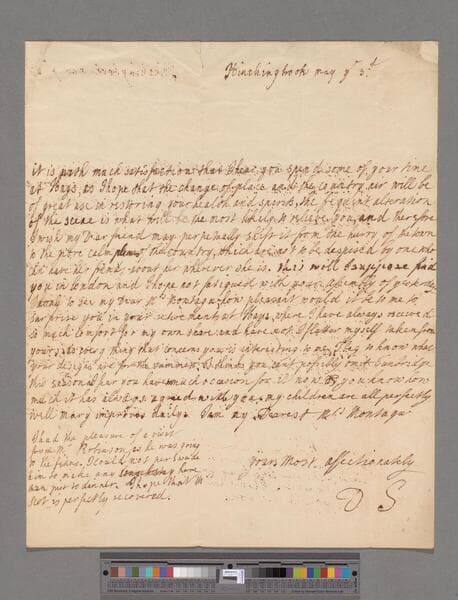 Hinchingbrook may yᵉ 3ᵈ
it is with much satisfaction that I hear you spend some of your time
at Hays, as I hope that the change of place and the Country air will be
of great use in restoring your health and spirits, the frequent alteration
of the scene is what will be the most likely to relieve you, and therefore
I wish my Dear friend may perpetually shift it from the hurry of the town
to the more calm of the country, which is not to be despised by one who
she is. this will I suppose find
you in London and I hope not fatigued with your assembly of yesterday
I long to see my Dear Mʳˢ Montagu, how pleasant would it be to me to
surprise you in your retirement at Hays, where I have always received
so much comfort for my own share and have not I flatter myself taken from
yours, as every thing that concerns you is interesting to me. I long to know what
your designs are for the summer, I think you can't possibly omit Tunbridge
this season, for you have much occasion for it now & you know how
much it has always agreed with you. my children are all perfectly
well Mary improves daily. I am my Dearest Mʳˢ Montagu
I had the pleasure of a visit
from Mʳ Robinson, as he was going
to the I could not perswade
him to make any long stay here
than just to dinner. I hope that Mʳˢ
Scot is perfectly recovered.
your most affectionately
D S